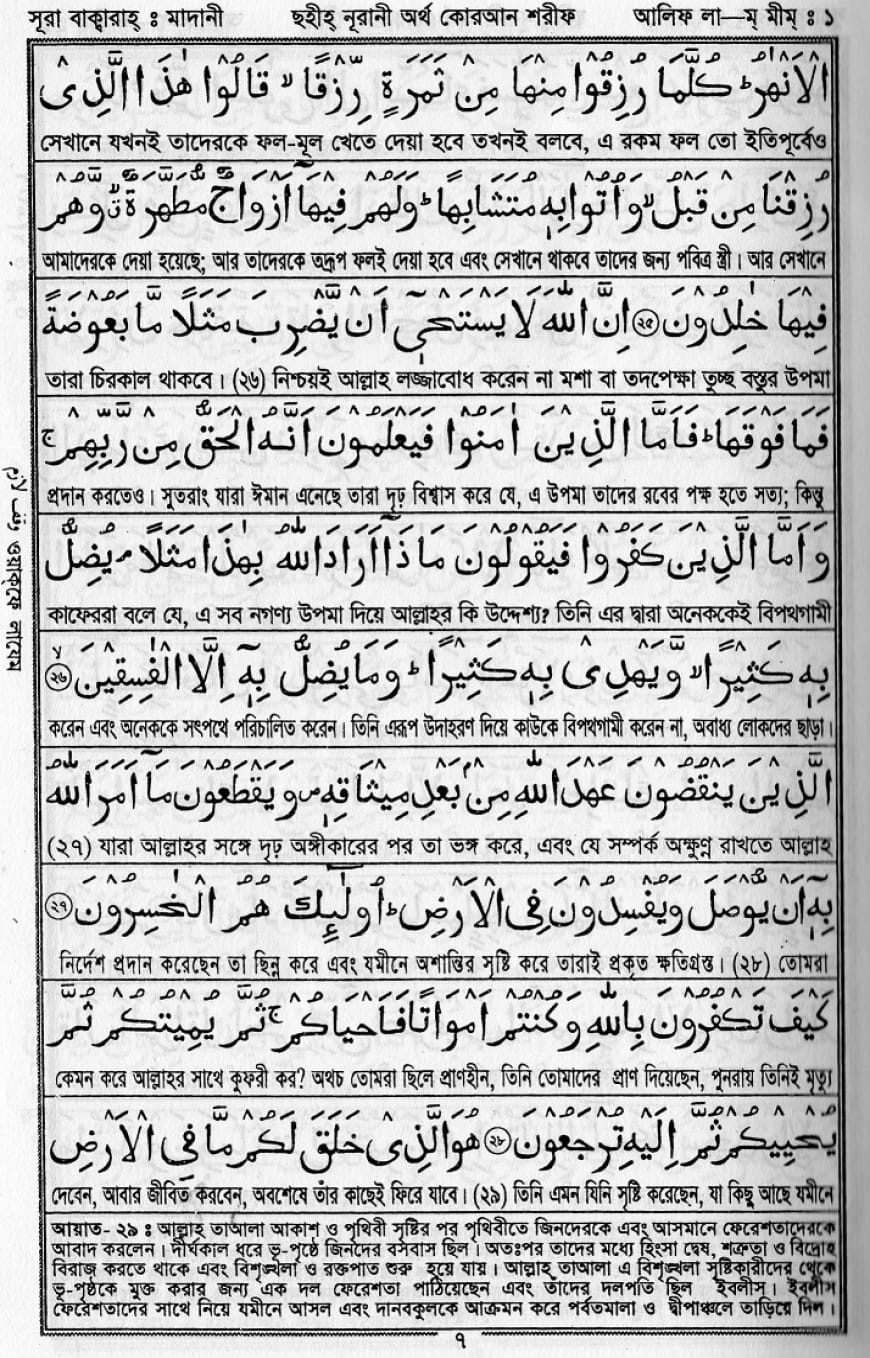 সূরা বাক্বারাহ্ : মাদানী ছহীহ্ নূরানী অর্থ কোরআন শরীফ আলিফ লা—ম্ মীম্ : ১
الْاَنْهٰرُ ؕ كُلَّمَا رُزِقُوْا مِنْهَا مِنْ ثَمَرَةٍ رِّزْقًا ۙ قَالُوْا هٰذَا الَّذِىْ
সেখানে যখনই তাদেরকে ফল-মূল খেতে দেয়া হবে তখনই বলবে, এ রকম ফল তো ইতিপূর্বেও
رُزِقْنَا مِنْ قَبْلُ ۙ وَاُتُوْا بِهٖ مُتَشَابِهًا ؕ وَلَهُمْ فِيْهَاۤ اَزْوَاجٌ مُّطَهَّرَةٌ ۙ وَّهُمْ
আমাদেরকে দেয়া হয়েছে; আর তাদেরকে তদ্রূপ ফলই দেয়া হবে এবং সেখানে থাকবে তাদের জন্য পবিত্র স্ত্রী। আর সেখানে
فِيْهَا خٰلِدُوْنَ ۲۵ اِنَّ اللّٰهَ لَا يَسْتَحْىٖۤ اَنْ يَّضْرِبَ مَثَلًا مَّا بَعُوْضَةً
তারা চিরকাল থাকবে। (২৬) নিশ্চয়ই আল্লাহ লজ্জাবোধ করেন না মশা বা তদপেক্ষা তুচ্ছ বস্তুর উপমা
فَمَا فَوْقَهَا ؕ فَاَمَّا الَّذِيْنَ اٰمَنُوْا فَيَعْلَمُوْنَ اَنَّهُ الْحَقُّ مِنْ رَّبِّهِمْ ۚ
প্রদান করতেও। সুতরাং যারা ঈমান এনেছে তারা দৃঢ় বিশ্বাস করে যে, এ উপমা তাদের রবের পক্ষ হতে সত্য; কিন্তু
وَاَمَّا الَّذِيْنَ كَفَرُوْا فَيَقُوْلُوْنَ مَاذَاۤ اَرَادَ اللّٰهُ بِهٰذَا مَثَلًا ۘ يُضِلُّ
কাফেররা বলে যে, এ সব নগণ্য উপমা দিয়ে আল্লাহর কি উদ্দেশ্য? তিনি এর দ্বারা অনেককেই বিপথগামী
بِهٖ كَثِيْرًا ۙ وَّيَهْدِىْ بِهٖ كَثِيْرًا ؕ وَمَا يُضِلُّ بِهٖۤ اِلَّا الْفٰسِقِيْنَ ۙ ۲۶
করেন এবং অনেককে সৎপথে পরিচালিত করেন। তিনি এরূপ উদাহরণ দিয়ে কাউকে বিপথগামী করেন না, অবাধ্য লোকদের ছাড়া।
الَّذِيْنَ يَنْقُضُوْنَ عَهْدَ اللّٰهِ مِنْۢ بَعْدِ مِيْثَاقِهٖ ۪ وَيَقْطَعُوْنَ مَاۤ اَمَرَ اللّٰهُ
(২৭) যারা আল্লাহর সঙ্গে দৃঢ় অঙ্গীকারের পর তা ভঙ্গ করে, এবং যে সম্পর্ক অক্ষুণ্ন রাখতে আল্লাহ
بِهٖۤ اَنْ يُّوْصَلَ وَيُفْسِدُوْنَ فِى الْاَرْضِ ؕ اُولٰٓئِكَ هُمُ الْخٰسِرُوْنَ ۲۷
নির্দেশ প্রদান করেছেন তা ছিন্ন করে এবং যমীনে অশান্তির সৃষ্টি করে তারাই প্রকৃত ক্ষতিগ্রস্ত। (২৮) তোমরা
كَيْفَ تَكْفُرُوْنَ بِاللّٰهِ وَكُنْتُمْ اَمْوَاتًا فَاَحْيَاكُمْ ۚ ثُمَّ يُمِيْتُكُمْ ثُمَّ
কেমন করে আল্লাহর সাথে কুফরী কর? অথচ তোমরা ছিলে প্রাণহীন, তিনি তোমাদের প্রাণ দিয়েছেন, পুনরায় তিনিই মৃত্যু
يُحْيِيْكُمْ ثُمَّ اِلَيْهِ تُرْجَعُوْنَ ۲۸ هُوَ الَّذِىْ خَلَقَ لَكُمْ مَّا فِى الْاَرْضِ
দেবেন, আবার জীবিত করবেন, অবশেষে তাঁর কাছেই ফিরে যাবে। (২৯) তিনি এমন যিনি সৃষ্টি করেছেন, যা কিছু আছে যমীনে
আয়াত- ২৯ : আল্লাহ্ তাআলা আকাশ ও পৃথিবী সৃষ্টির পর পৃথিবীতে জিনদেরকে এবং আসমানে ফেরেশতাদেরকে
আবাদ করলেন। দীর্ঘকাল ধরে ভূ-পৃষ্ঠে জিনদের বসবাস ছিল। অতঃপর তাদের মধ্যে হিংসা দ্বেষ, শত্রুতা ও বিদ্রোহ
বিরাজ করতে থাকে এবং বিশৃঙ্খলা ও রক্তপাত শুরু হয়ে যায়। আল্লাহ্ তাআলা এ বিশৃঙ্খলা সৃষ্টিকারীদের থেকে
ভূ-পৃষ্ঠকে মুক্ত করার জন্য এক দল ফেরেশতা পাঠিয়েছেন এবং তাঁদের দলপতি ছিল ইবলীস। ইবলীস
ফেরেশতাদের সাথে নিয়ে যমীনে আসল এবং দানবকুলকে আক্রমন করে পর্বতমালা ও দ্বীপাঞ্চলে তাড়িয়ে দিল।
৭
وقف لازم ওয়াক্বফে লাযেম